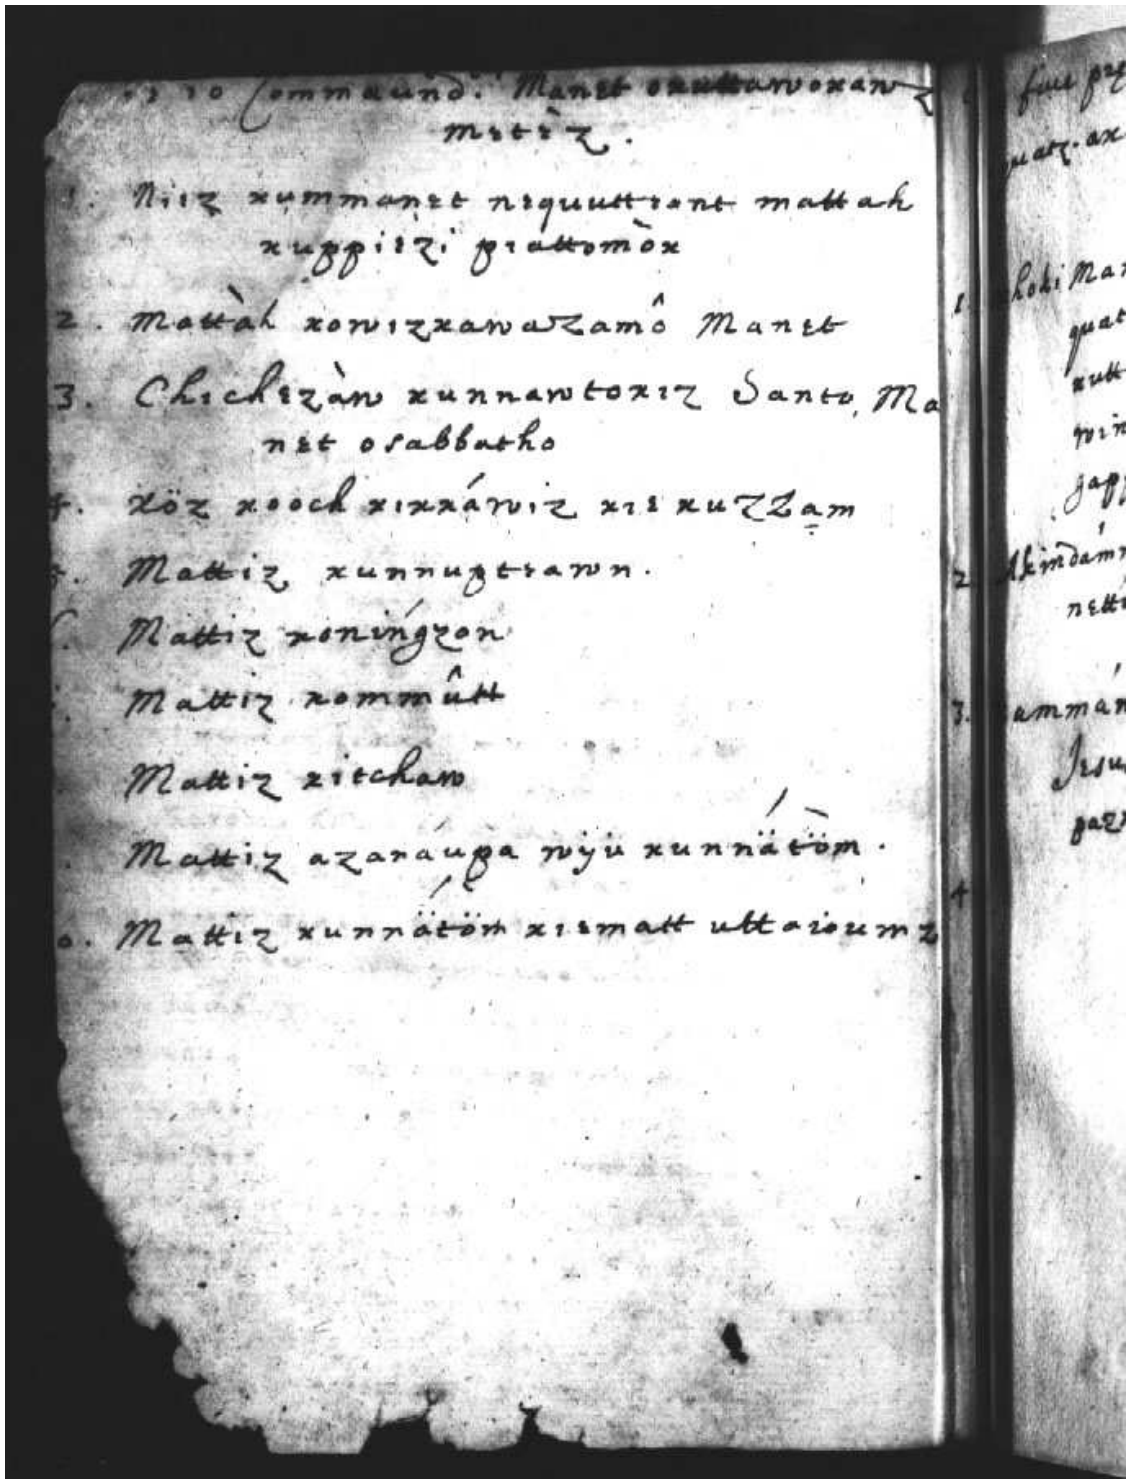 10 Commaund. Manet okuttawokaw
metèz.
1. Niiz kummanet nequutteant mattah
kuppièzi piattomòk
2. Mattàh kowizkawaZamô Manet
3. Chichezàw kunnawtokiz Santo, Ma
net osabbatho
4. Köz kooch kikkáwiz kie kuZZam
5. Mattiz kunnupteawn.
Mattiz koníngzon
Mattiz kommûtt
Mattiz kitchaw
Mattiz azanáupa wÿu kunnätöm.
o. Mattiz kunnätöm kiematt uttaioumz
fiue pze
quatz. ak
1. khoki Man
quat
kutt
win
gapp
2 Akindámn
netti
3. ammán
Jesu
pazk
4